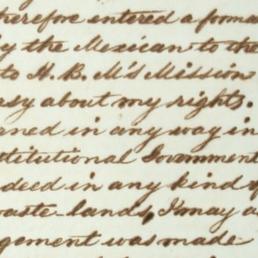 therefore entered a forma
by the Mexican to the
to H. B. M's Mission
rsy about my rights.
rned in any way in
stitutional Government
ndeed in any kind of
waste-lands, I may a
gement was made